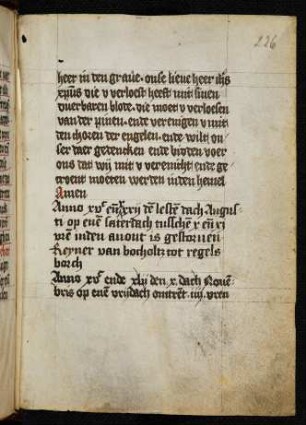 226
heer in den graue. onse lieue heer ihs
xpus die v verloest heeft mit sinen
duerbaren blode. die moet v verloesen
van der pinen. ende verenigen v mit
den choren der engelen. ende wilt on
ser daer gedencken ende bidden voer
ons dat wij mit v verenicht ende ge
troest moeten werden inden hemel
Amen
Anno xvc xxij lesten dach Augus
ti op enen saterdach tusschen x en xi
vren inden auont is gestoruen
Reyner van bocholtz tot regels
borch
Anno xvc ende xlij den x. dach Nouem
bris op enen vrijdach omtrent iiij vren